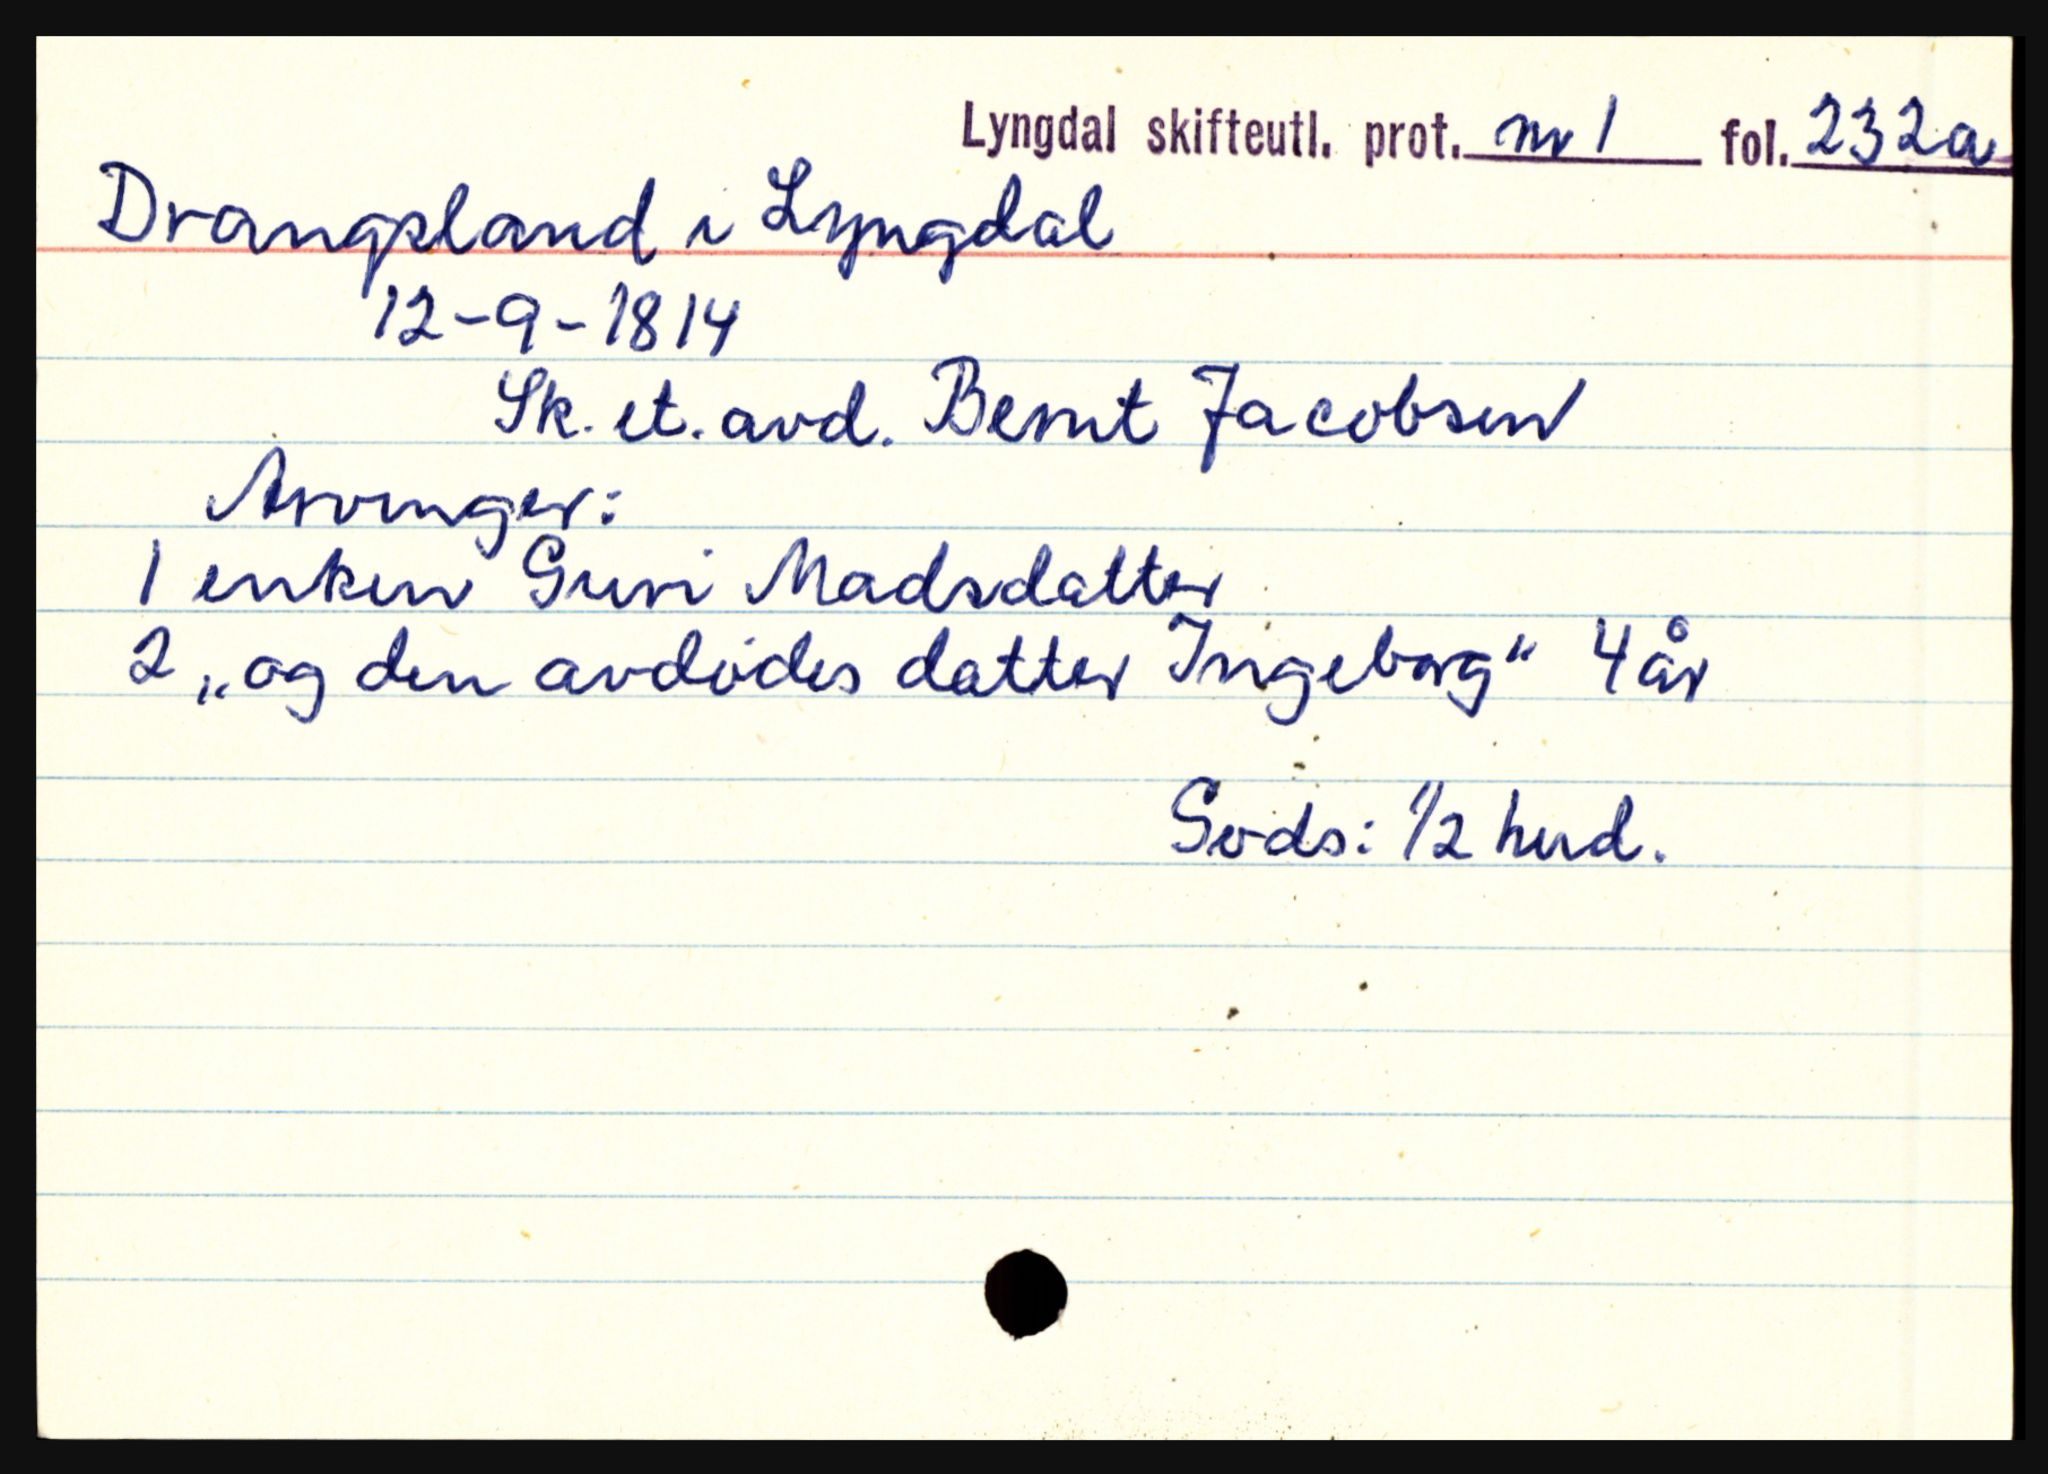 Lyngdal skifteutl. prot. nr 1 fol. 232a
Drangsland i Lyngdal
12-9-1814
Sk. et. avd. Bernt Jacobsen
Arvinger:
1 enken Guri Madsdatter
2 „og den avdødes datter Ingeborg" 4 år
Gods: 1/2 hud.